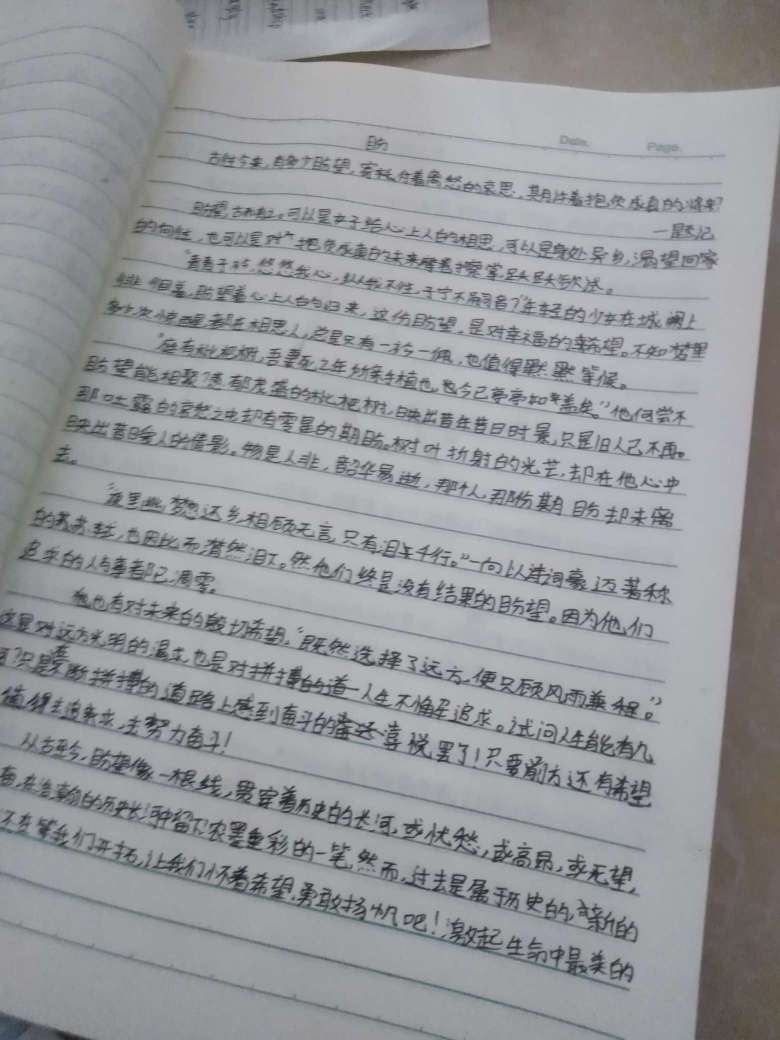 Date. Page.
盼
古往今来,有多少盼望,寄托着离愁的哀思,期许着抱负成真的将来?
—题记
盼望,古朴。可以是女子给心上人的相思,可以是身处异乡,渴望回家
的向往,也可以是对抱负成真的未来
"青青子衿,悠悠我心,纵我不往,子宁不嗣音?"年轻的少女在城阙上
徘徊着,盼望着心上人的归来,这份盼望,是对幸福的希望。不知梦里
多少次惊醒,相思人,总是只有一衿一佩,也值得默默等候。
"庭有枇杷树,吾妻死之年所手植也,今已亭亭如盖矣。"他何尝不
盼望能相聚?郁茂盛的枇杷树,映出昔年昔日时景,只是旧人已不再。
那吐露的哀愁之中却有零星的期盼。树叶折射的光芒,却在他心中
映出昔日佳人的倩影。物是人非,韶华易逝,那人,那份期盼却未离
去。
"夜里幽梦忽还乡,相顾无言,只有泪千行。"一向以诗词豪迈著称
的苏轼,也因此而潸然泪下。然他们终是没有结果的盼望。因为他们
追求的人与事都已凋零。
他也有对未来的殷切希望,"既然选择了远方,便只顾风雨兼程。"
这是对远方光明的追求,也是对拼搏的道人生不懈追求。试问人生能有几
只是在拼搏的道路上感到奋斗的喜悦罢了!只要前方还有希望
值得去追求,去努力奋斗!
从古至今,盼望像一根线,贯穿着历史的长河,或忧愁,或高昂,或无望,
在历史长河中留下浓墨重彩的一笔,然而,过去是属于历史的,新的
等我们开拓,让我们怀着希望,勇敢扬帆吧!激起生命中最美的